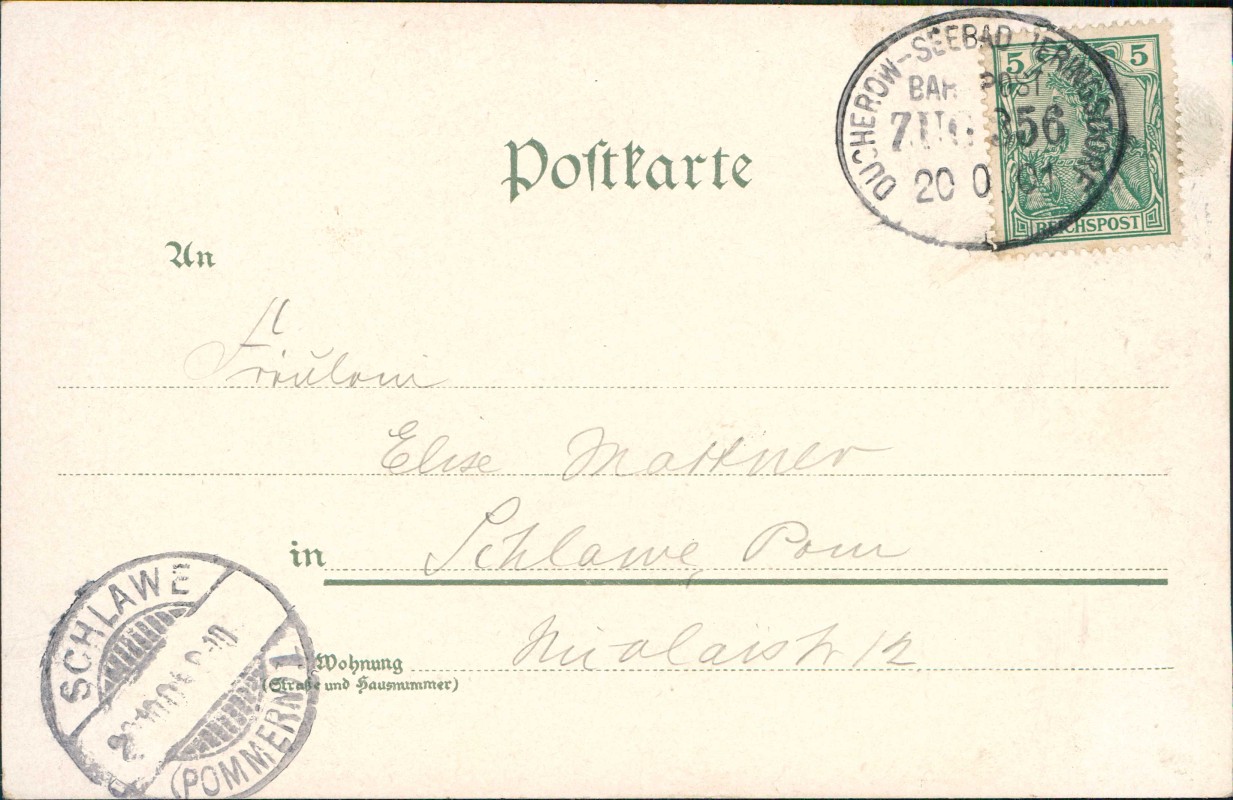 DUCHEROW-SEEBAD HERINGSDORF
BAHNPOST
ZUG 356
20 01
5 5
REICHSPOST
Poſtkarte
An
Fräulein
Elise Mattner
in Schlawe, Pom
Wohnung Nicolaistr 12
(Straße und Hausnummer)
SCHLAWE
(POMMERN)